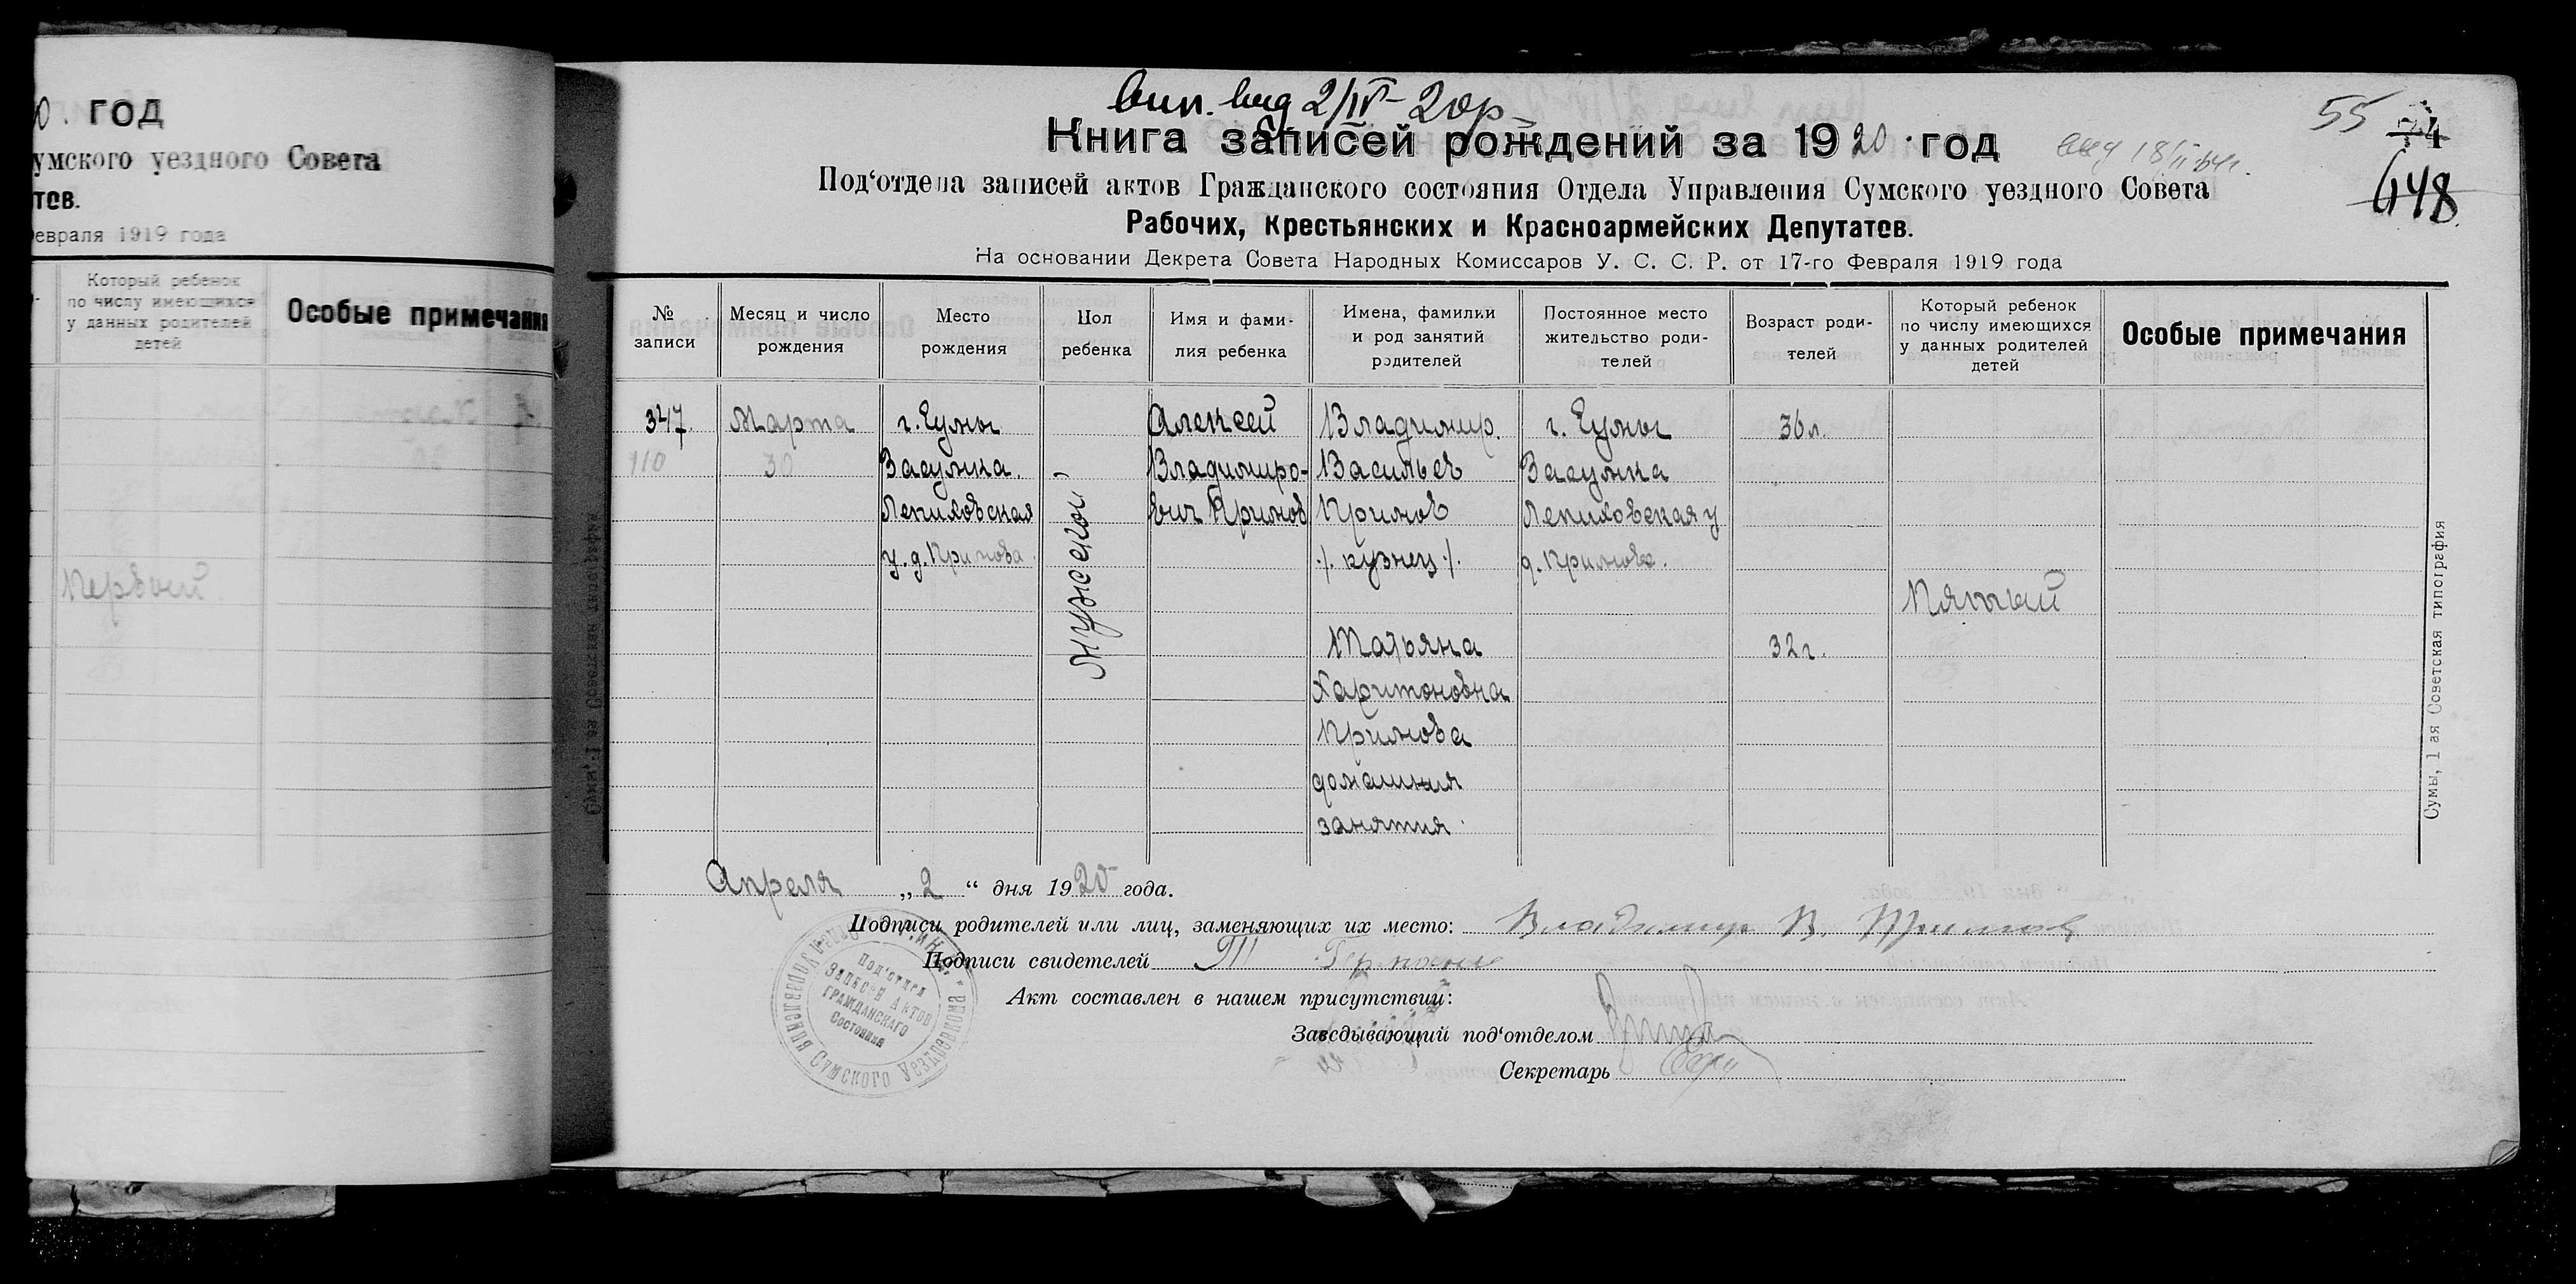 0. ГОД
умского уездного Совета
тов.
евраля 1919 года
Который ребенок
по числу имеющихся
у данных родителей
детей
Особые примечания
Первый
2/IV- 20
Книга записей рождений за 1920. год
55
448
Под‘отдела записей актов Гражданского состояния Отдела Управления Сумского уездного Совета
Рабочих, Крестьянских и Красноармейских Депутатов.
На основании Декрета Совета Народных Комиссаров У. С. С. Р. от 17-го Февраля 1919 года
№
записи
Месяц и число
рождения
Место
рождения
Пол
ребенка
Имя и фами-
лия ребенка
Имена, фамилии
и род занятий
родителей
Постоянное место
жительство роди-
телей
Возраст роди-
телей
Который ребенок
по числу имеющихся
у данных родителей
детей
Особые примечания
347.
110
Марта
30
г. Сумы
Засумка.
Лепиховская
у. д. Примова.
мужской
Алексей
Владимиро-
вич Примов
Владимир.
Васильев
Примов
./. кузнец ./.
Татьяна
Харитоновна
Примова
домашния
занятия.
г. Сумы
Засумка
Лепиховская у
д. Примова.
36 л.
32 г.
Пятый
Апреля „ 2 “ дня 1920 года.
Подписи родителей или лиц, заменяющих их место: Владимир В. Примов
Подписи свидетелей
Акт составлен в нашем присутствии:
Заведывающий под‘отделом
Секретарь
Под‘отдел
Записей Актов
Гражданскаго
Состояния
Сумского Уездревкома
Сумы, 1 ая Советская типография